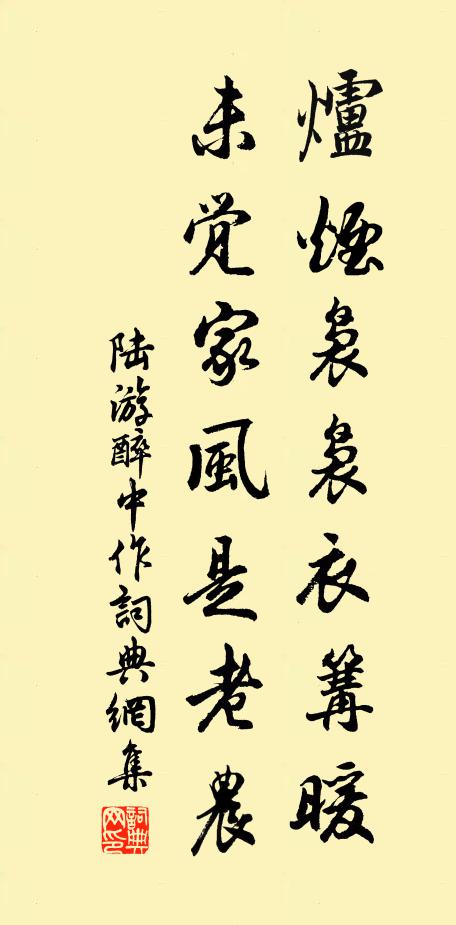 爐煙裊裊衣篝暖
未觉家風是老農
陆游醉中作詞典網集
詞典網印